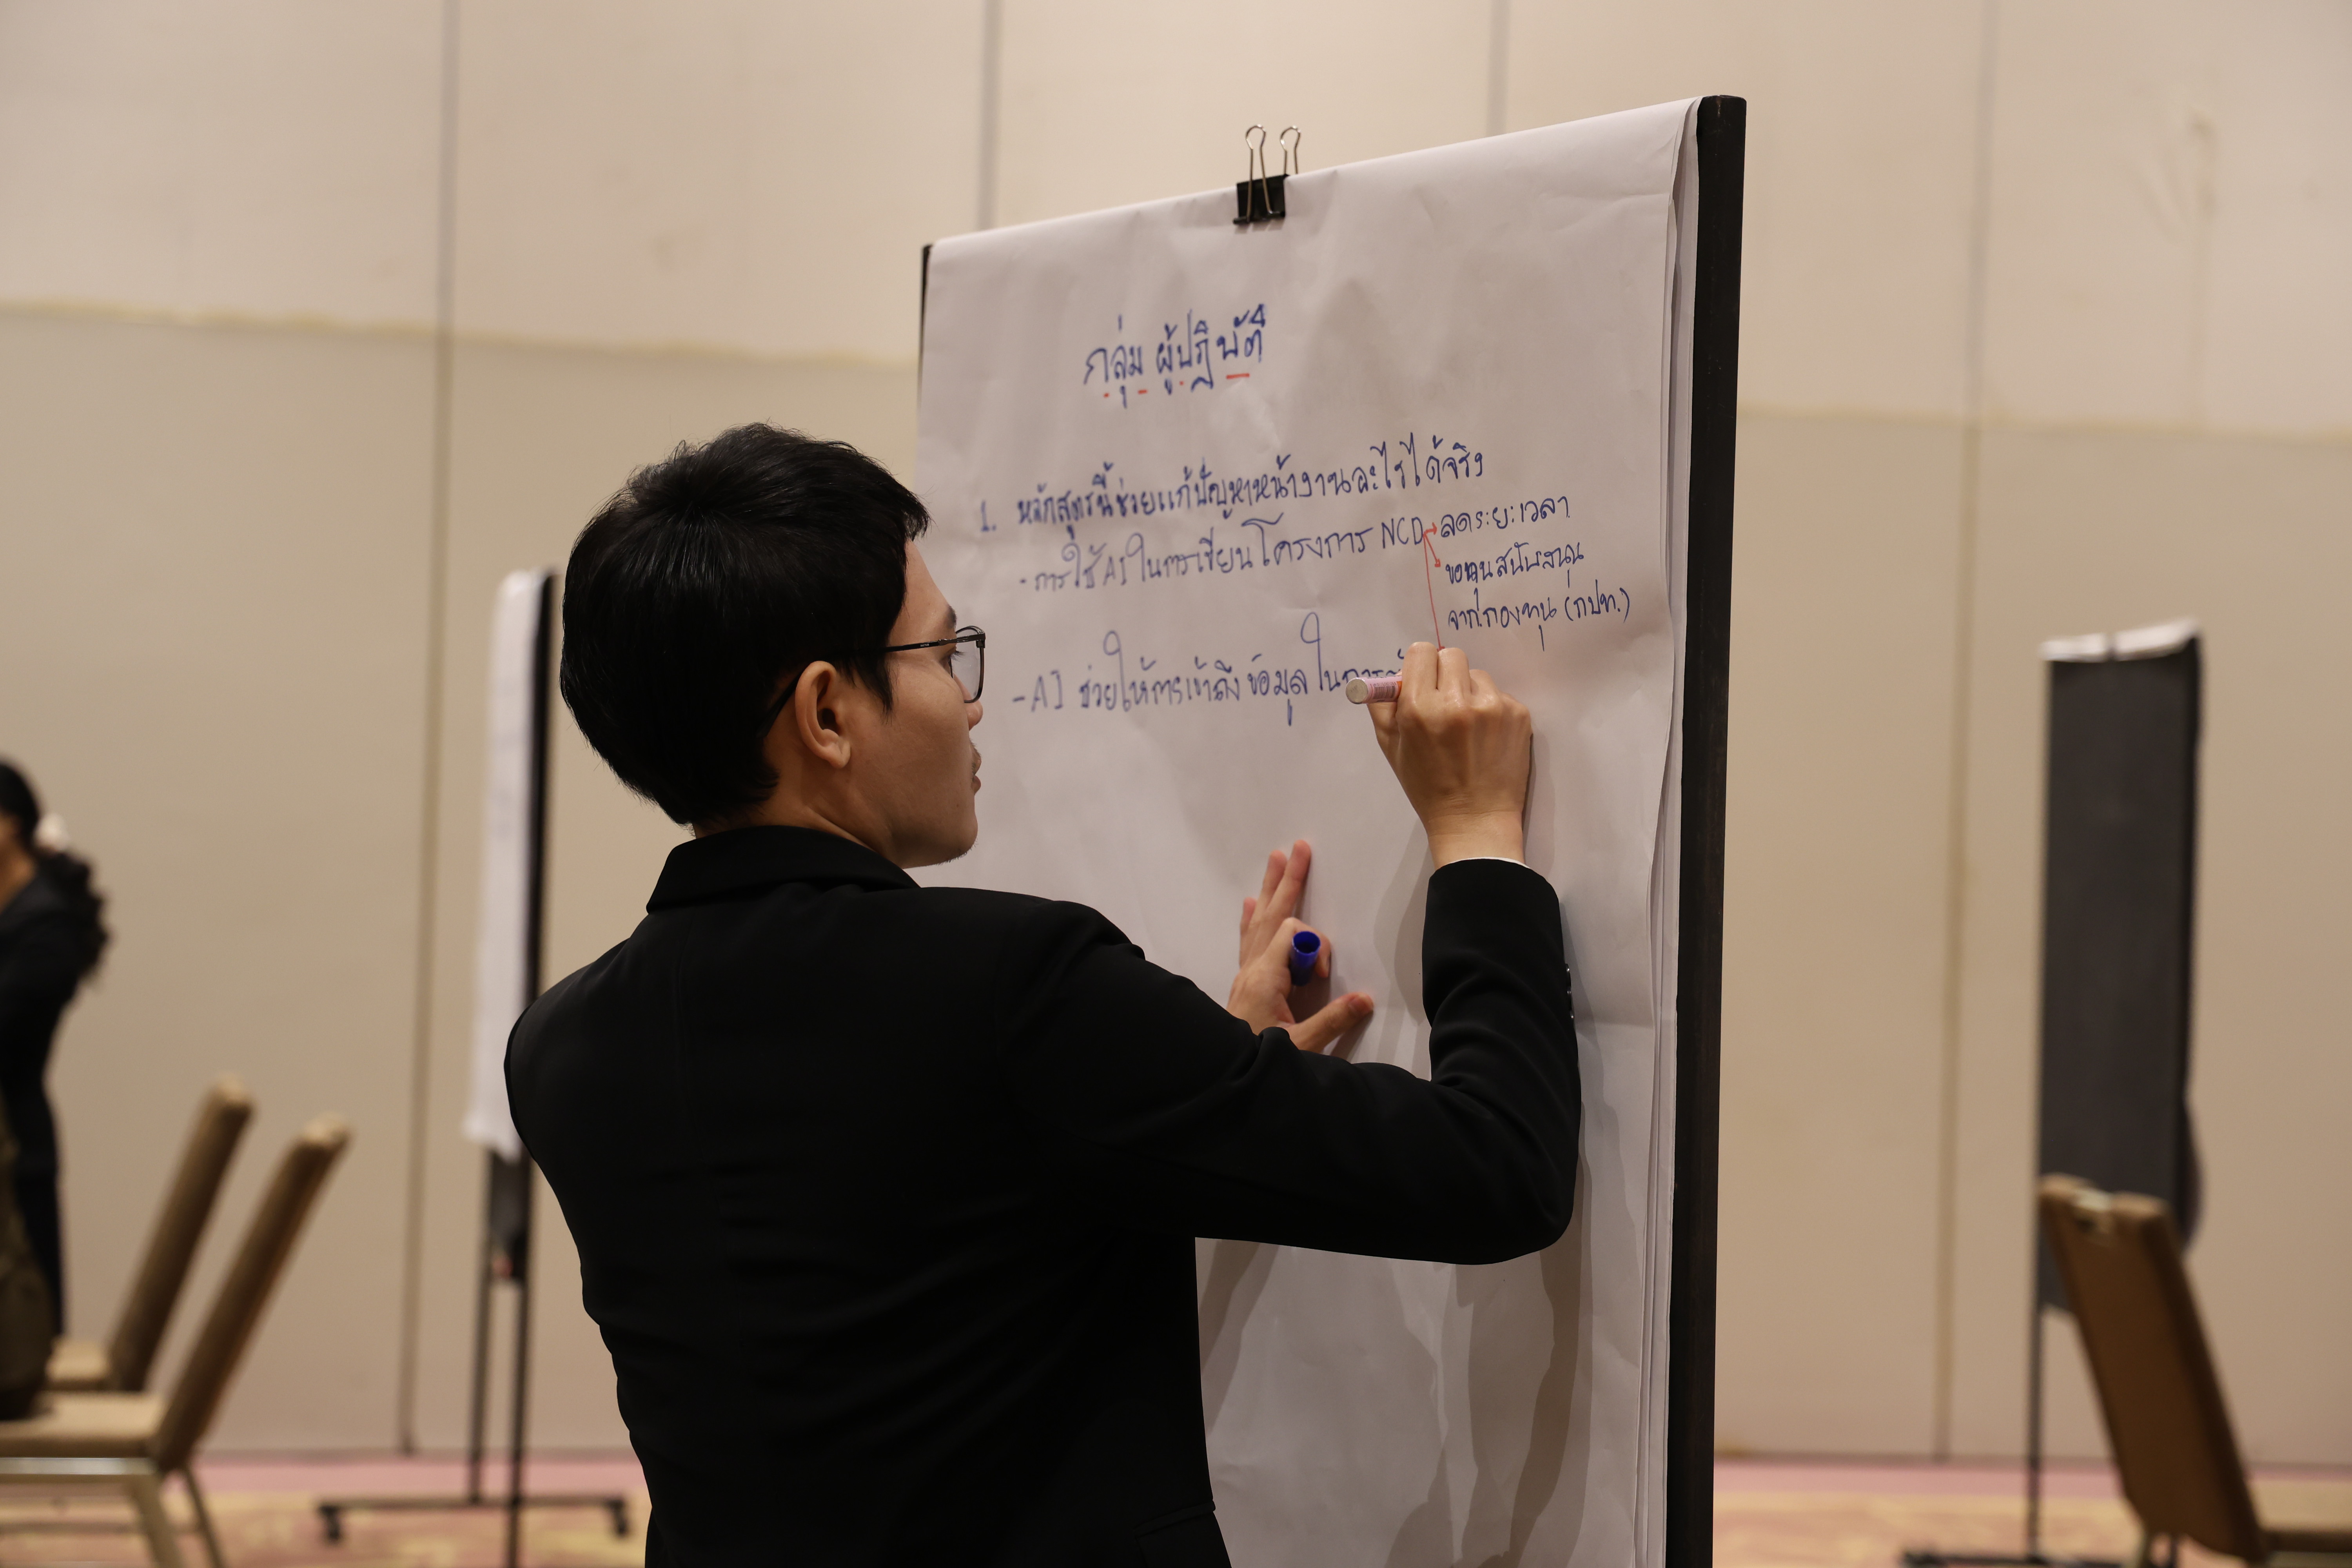 กลุ่ม ผู้ปฏิบัติ
1. หลักสูตรนี้ช่วยแก้ปัญหาหน้างานอะไรได้จริง
- การใช้ AI ในการเขียนโครงการ NCD → ลดระยะเวลา
ขอทุนสนับสนุน
จากกองทุน (กปท.)
- AI ช่วยให้การเข้าถึงข้อมูลในการ